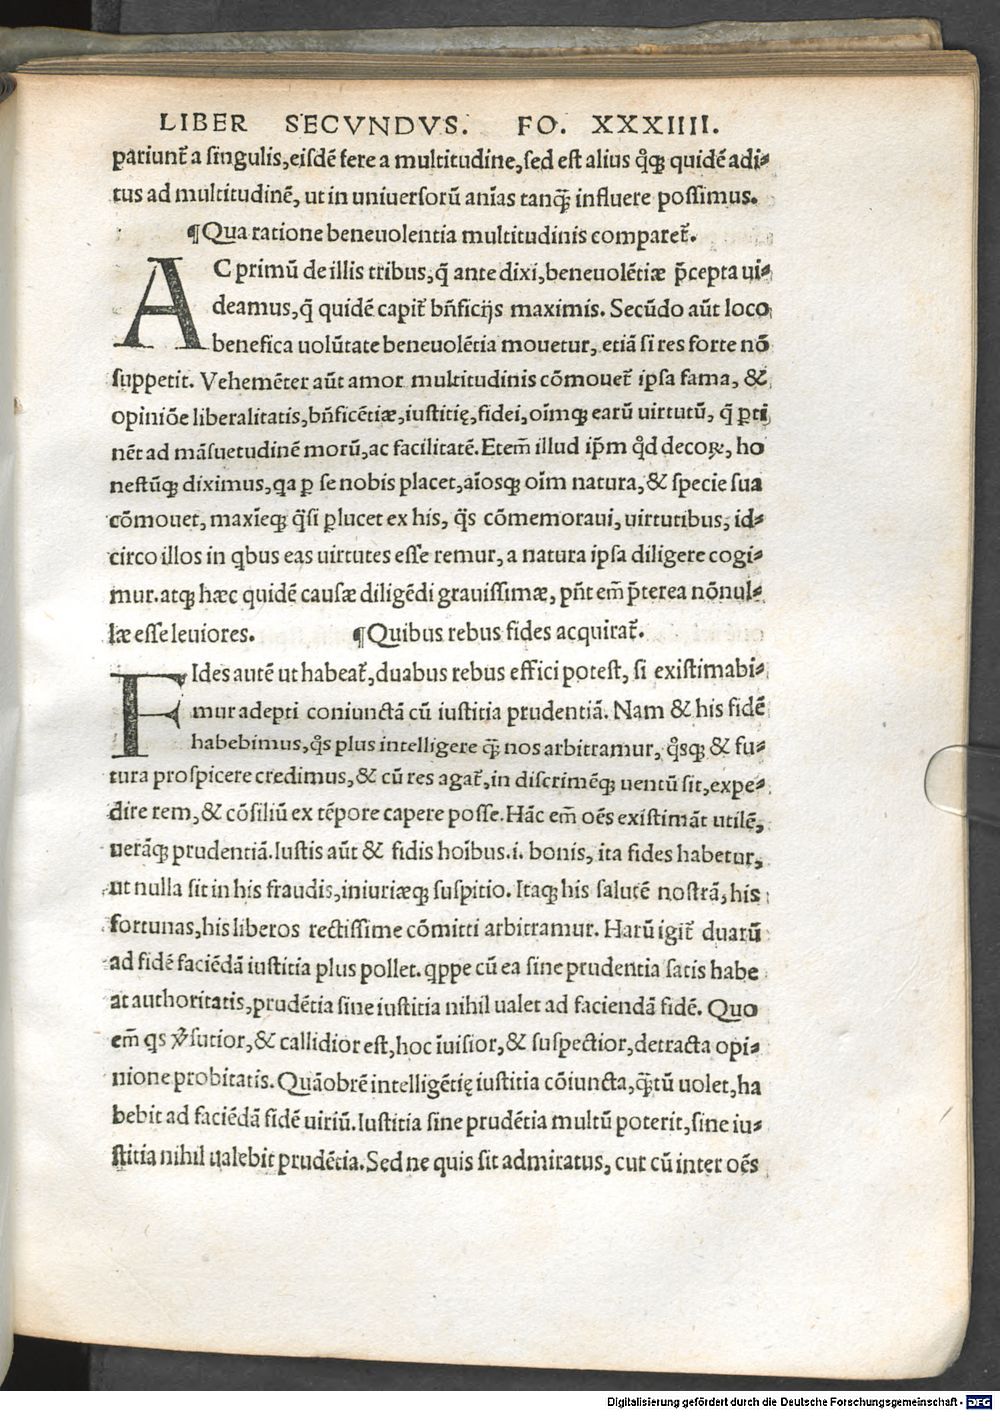 LIBER SECVNDVS. FO. XXXIIII.
pariunt᷑ a singulis, eisdē fere a multitudine, sed est alius qͦꝗ quidē adi⸗
tus ad multitudinē, ut in uniuersorū aīas tanꝗ̄ influere possimus.
¶Qua ratione beneuolentia multitudinis comparet᷑.
AC primū de illis tribus, q̄ ante dixi, beneuolētiæ p̄cepta ui⸗
deamus, q̄ quidē capit᷑ bn̄ficijs maximis. Secūdo aūt loco
benefica uolūtate beneuolētia mouetur, etiā si res forte nō
suppetit. Vehemēter aūt amor multitudinis cōmouet᷑ ipsa fama, &
opiniōe liberalitatis, bn̄ficētiæ, iustitię, fidei, oīmꝗ earū uirtutū, q̄ ꝑti
nēt ad māsuetudinē morū, ac facilitatē. Etem̄ illud ip̄m qͦd decoꝝ, ho
nestūꝗ diximus, qa ꝑ se nobis placet, aīosꝗ oīm natura, & specie sua
cōmouet, maxīeꝗ q̄si ꝑlucet ex his, q̄s cōmemoraui, uirtutibus, id⸗
circo illos in qbus eas uirtutes esse remur, a natura ipsa diligere cogi⸗
mur. atꝗ hæc quidē causæ diligēdi grauissimæ, pn̄t em̄ p̄terea nōnul⸗
læ esse leuiores. ¶Quibus rebus fides acquirat᷑.
FIdes autē ut habeat᷑, duabus rebus effici potest, si existimabi⸗
mur adepti coniunctā cū iustitia prudentiā. Nam & his fidē
habebimus, qͦs plus intelligere ꝗ̄ nos arbitramur, qͦsꝗ & fu⸗
tura prospicere credimus, & cū res agat᷑, in discrimēꝗ uentū sit, expe⸗
dire rem, & cōsiliū ex tēpore capere posse. Hāc em̄ oēs existimāt utilē,
uerāꝗ prudentiā. Iustis aūt & fidis hoībus .i. bonis, ita fides habetur,
ut nulla sit in his fraudis, iniuriæꝗ suspitio. Itaꝗ his salutē nostrā, his
fortunas, his liberos rectissime cōmitti arbitramur. Harū igit᷑ duarū
ad fidē faciēdā iustitia plus pollet. qppe cū ea sine prudentia satis habe
at authoritatis, prudētia sine iustitia nihil ualet ad faciendā fidē. Quo
em̄ qs ꝟsutior, & callidior est, hoc īuisior, & suspectior, detracta opi⸗
nione probitatis. Quāobrē intelligētię iustitia cōiuncta, ꝗ̄tū uolet, ha
bebit ad faciēdā fidē uiriū. Iustitia sine prudētia multū poterit, sine iu⸗
stitia nihil ualebit prudētia. Sed ne quis sit admiratus, cur cū inter oēs
Digitalisierung gefördert durch die Deutsche Forschungsgemeinschaft - DFG